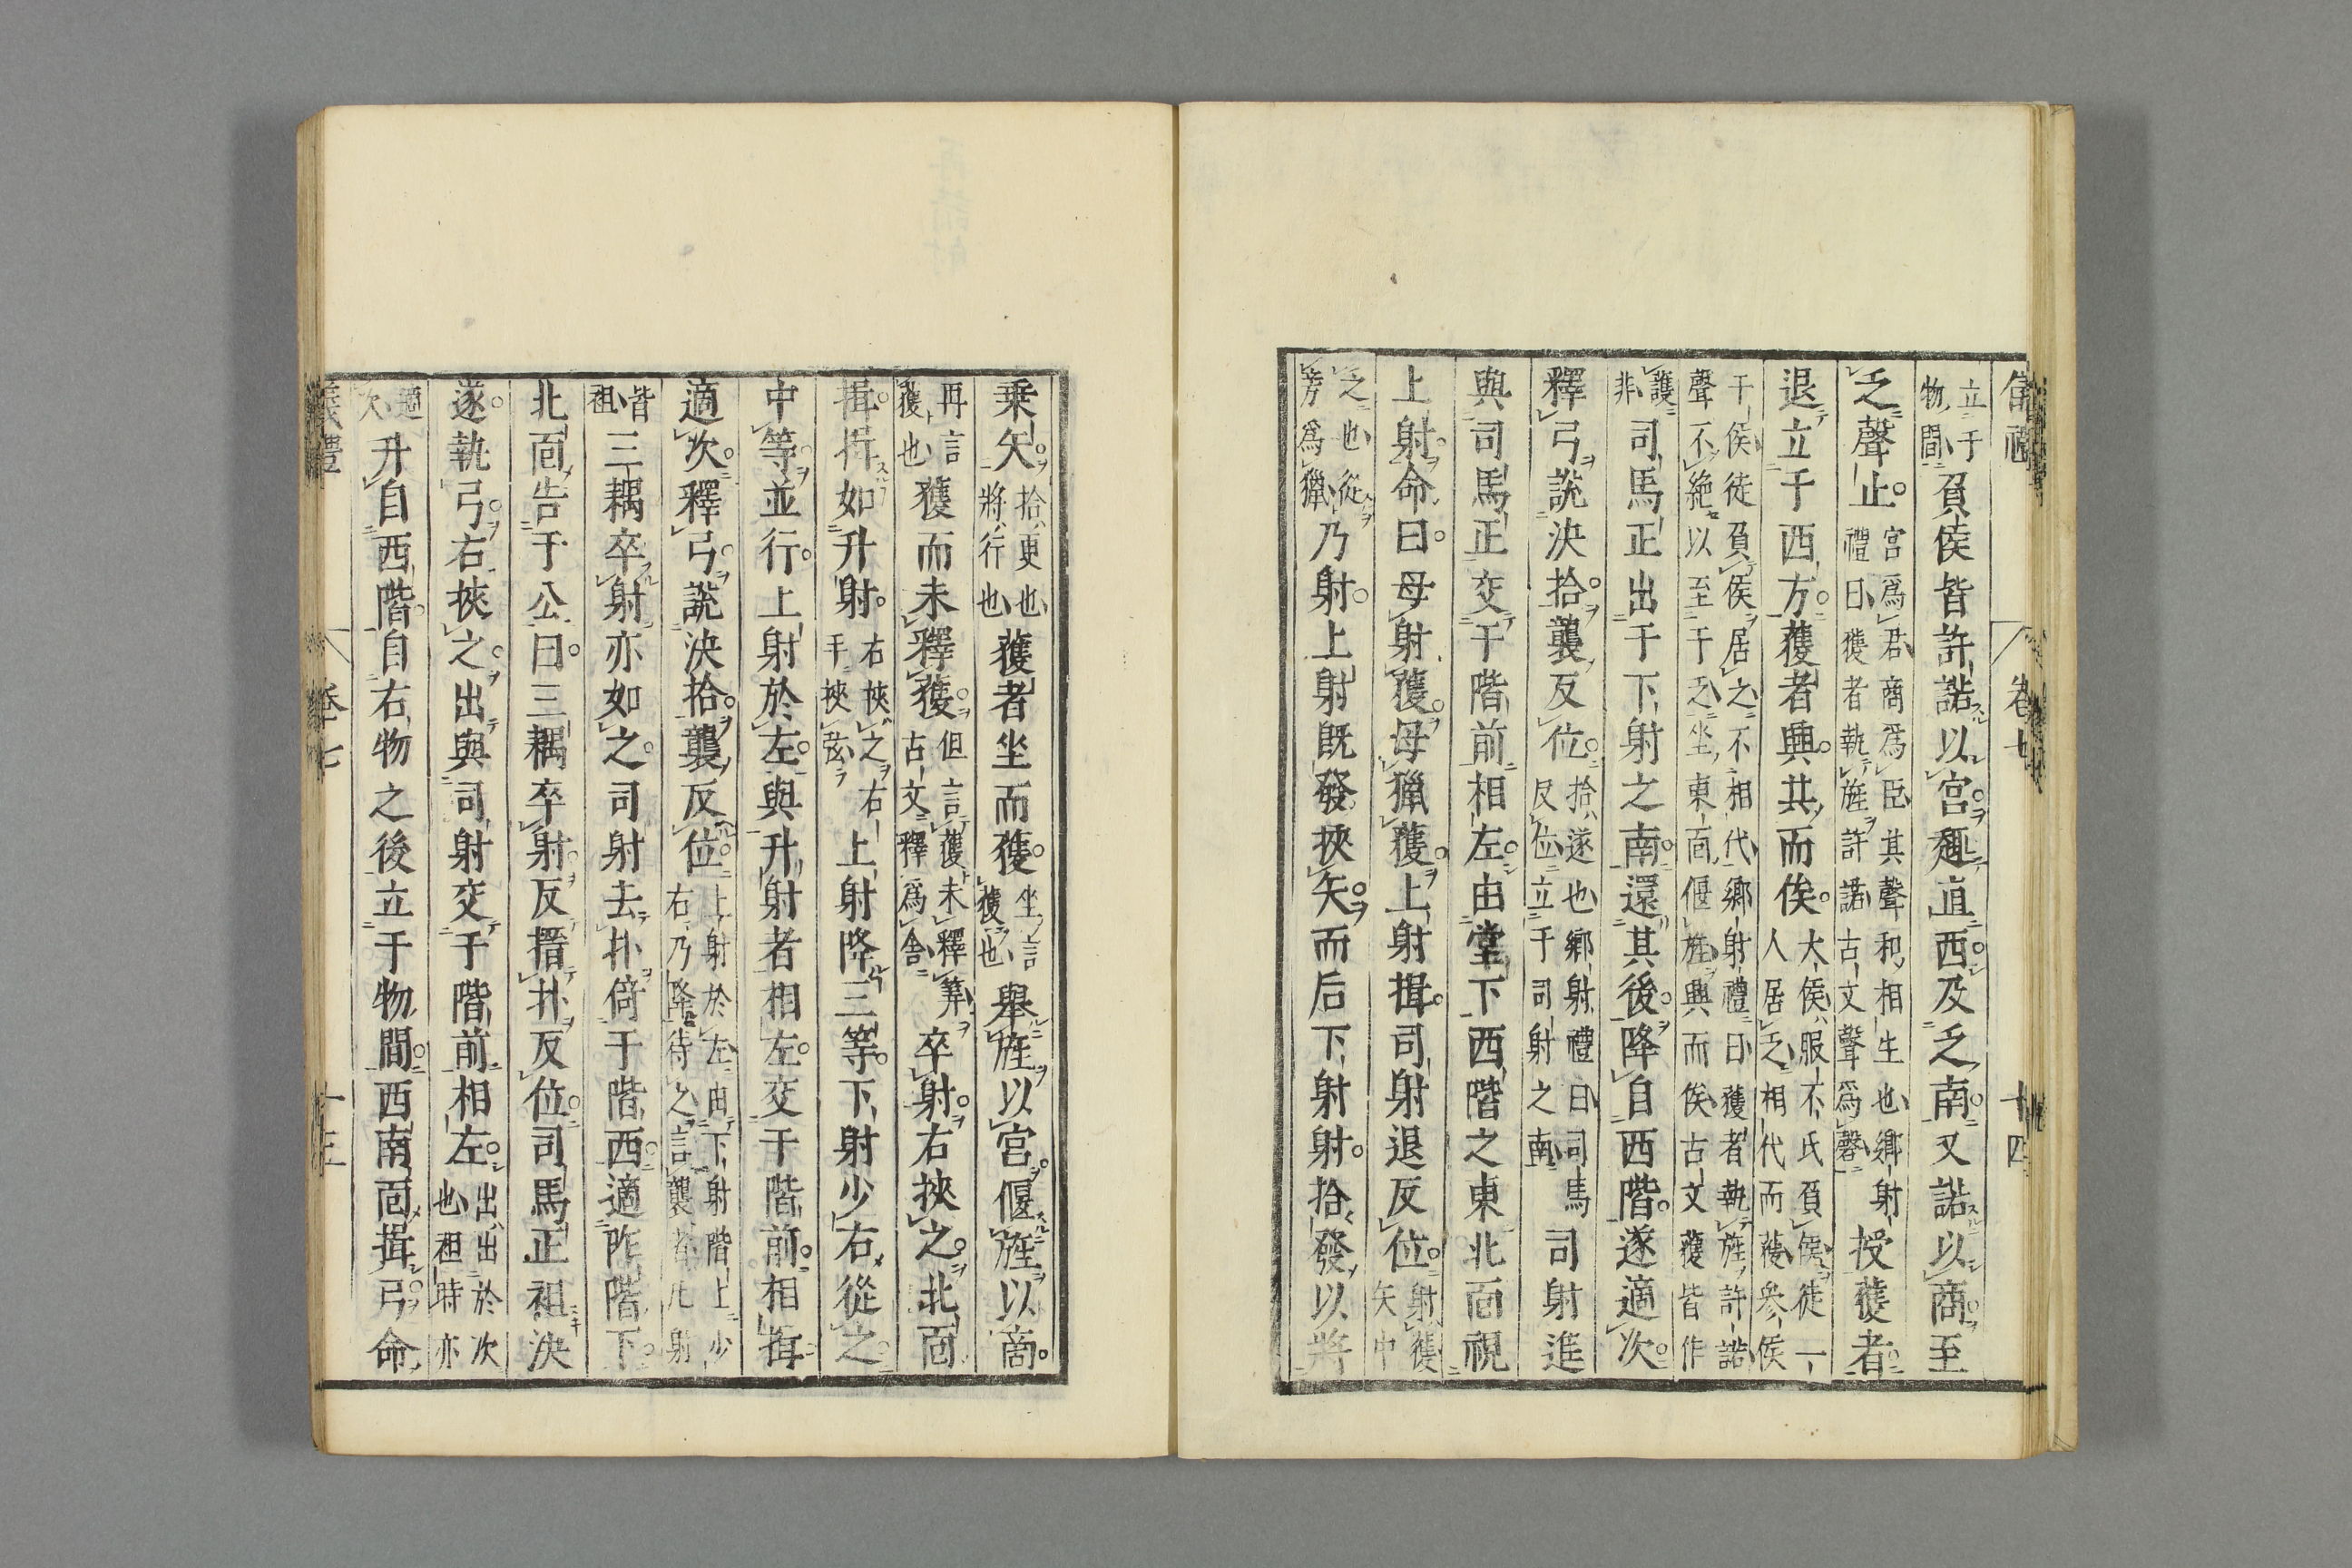 儀禮 卷七 十四
立于物間負侯皆許諾以宮趨直西及乏南又諾以商至
乏聲止宮爲君商爲臣其聲和相生也鄉射禮曰獲者執旌許諾古文聲爲磬授獲者
退立于西方獲者興共而俟大侯服不氏負侯徒一人居乏相代而獲參侯
干侯徒負侯居之不相代鄉射禮曰獲者執旌許諾聲不絶以至于乏坐東面偃旌興而俟古文獲皆作
護非司馬正出于下射之南還其後降自西階遂適次
釋弓說決拾襲反位拾遂也鄉射禮曰司馬反位立于司射之南司射進
與司馬正交于階前相左由堂下西階之東北面視
上射命曰毋射獲毋獵獲上射揖司射退反位射獲矢中
之也從旁爲獵乃射上射旣發挾矢而后下射射拾發以將
乘矢拾更也將行也獲者坐而獲坐言獲也舉旌以宮偃旌以商
再言獲也獲而未釋獲但言獲未釋筭古文釋爲舍卒射右挾之北面
揖揖如升射右挾之右手挾弦上射降三等下射少右從之
中等並行上射於左與升射者相左交于階前相揖
適次釋弓說決拾襲反位上射於左由下射階上少右乃降待之言襲者凡射
皆袒三耦卒射亦如之司射去扑倚于階西適阼階下
北面告于公曰三耦卒射反搢扑反位司馬正袒決
遂執弓右挾之出與司射交于階前相左出出於次也袒時亦
適次升自西階自右物之後立于物間西南面揖弓命
儀禮 卷七 十三